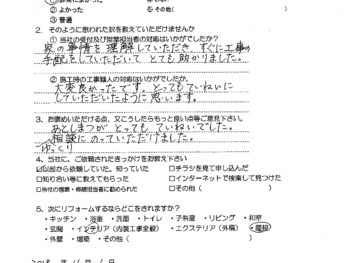 ② よかった ⑤ その他（ ）
③ 普通
2. そのように思われた訳を教えていただけませんか
① 当社の受付及び営業担当者の対応はいかがでしたか？
家の事情を理解していただき、すぐに工事の
手配をしていただいて とても助かりました。
② 施工時の工事職人の対応はいかがでしたか。
大変良かったです。とってもていねいに
していただいたように思います。
3. お褒めいただける点、又こうしたらもっと良い点等ご意見下さい。
あとしまつが とっても ていねいでした。
相談に のっていただけました。
ゆっくり
4. 当社に、ご依頼されたきっかけをお教え下さい
☑以前から依頼していた、知っていた □チラシを見て申し込んだ
□知り合い等に教えてもらった □インターネットで検索して見つけた
□当社の営業・修繕担当者に勧められた □その他（ ）
5. 次にリフォームするならどこをされますか？
・キッチン ・浴室 ・洗面 ・トイレ ・子供室 ・リビング ・和室
・玄関 ・インテリア（内装工事全般） ・エクステリア（外構） ・屋根
・外壁 ・増築 ・その他（ ）
2018 年 11 月 6 日